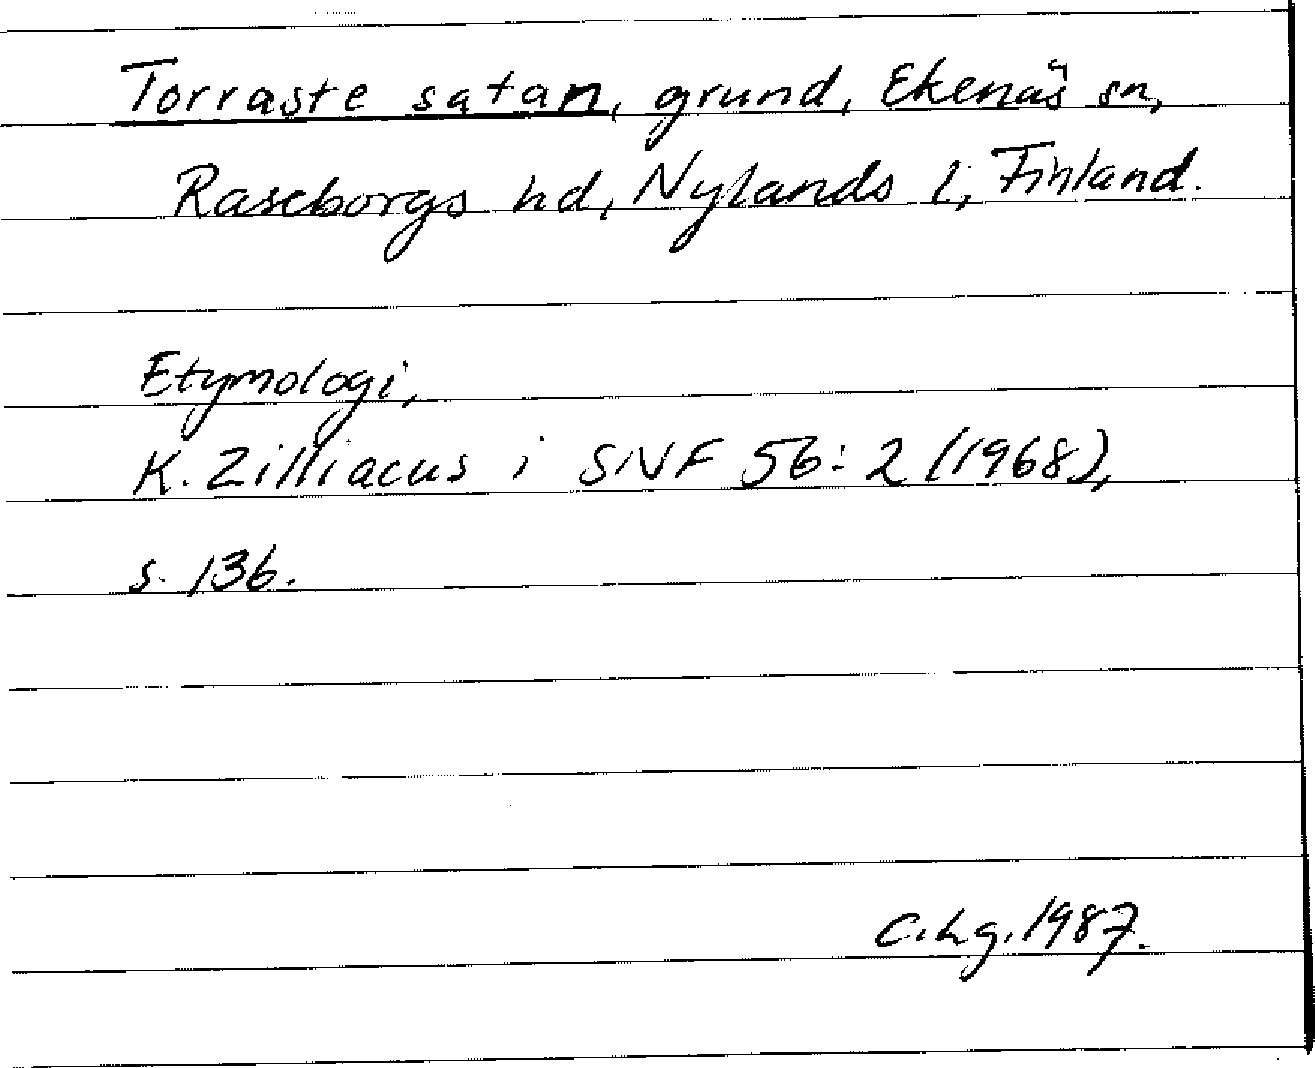 Torraste satan, grund, Ekenäs sn,
Raseborgs hd, Nylands l, Finland.
Etymologi,
K. Zilliacus i SNF 56:2 (1968),
s. 136.
C.Lg. 1987.